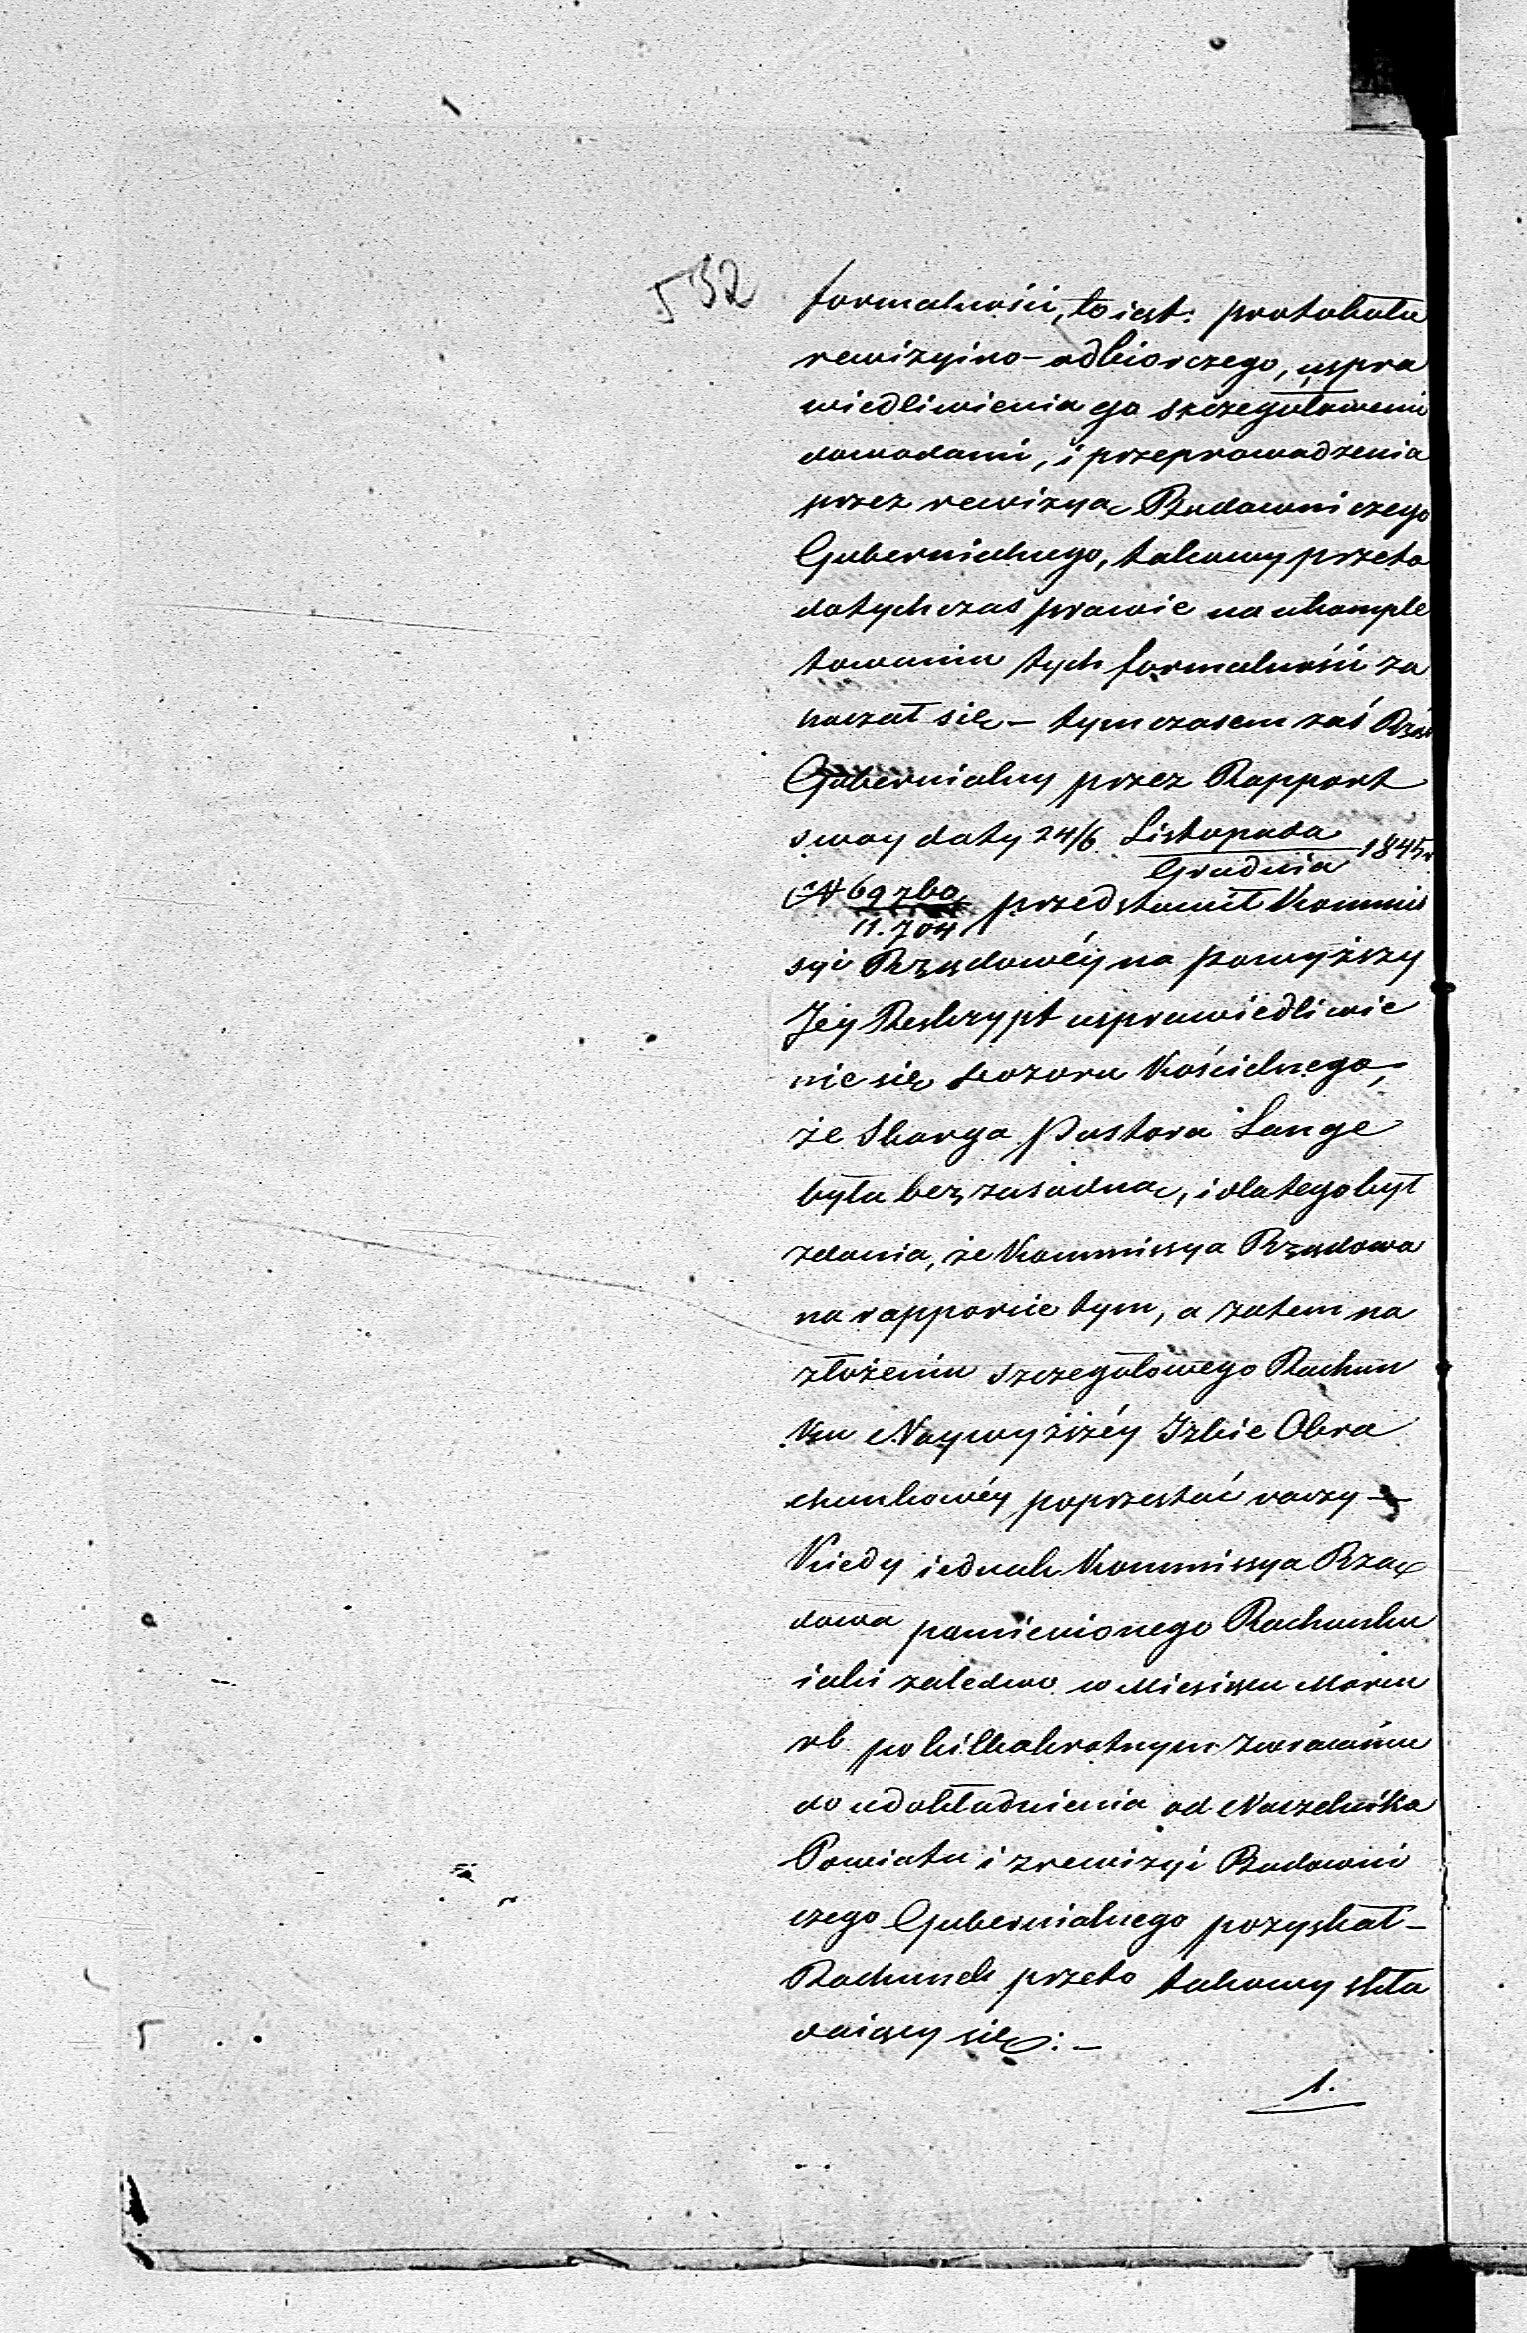 532
formalności, to iest: protokułu
rewizyino-odbiorczego, uspra
wiedliwienia go szczegółowemi
dowodami, i przeprowadzenia
przez rewizyą Budowniczego
Gubernialnego, takowy przeto
dotychczas prawie na ukomple
towaniu tych formalności za
kończał się – tymczasem zaś Rząd
Gubernialny przez Rapport
swoy daty 24/6 Listopada/Grudnia 1845r
N 69760/11.704 przedstawił Kommis
syi Rządowéy na powyższy
Jéy Reskrypt usprawiedliwie
nie się Dozoru Kościelnego,
że Skarga Pastora Lange
była bezzasadną, i dlatego był
zdania, że Kommissya Rządowa
na rapporcie tym, a zatem na
złożeniu szczegółowego Rachun
ku Naywyższéy Izbie Obra
chunkowéy poprzestać raczy –
Kiedy iednak Kommissya Rzą
dowa pomienionego Rachunku
iaki zaledwo w Miesiącu Marcu
rb. po kilkakrotnym zwracaniu
do udokładnienia od Naczelnika
Powiatu i z rewizyi Budowni
czego Gubernialnego pozyskał –
Rachunek przeto takowy skła
daiący się: –
1.